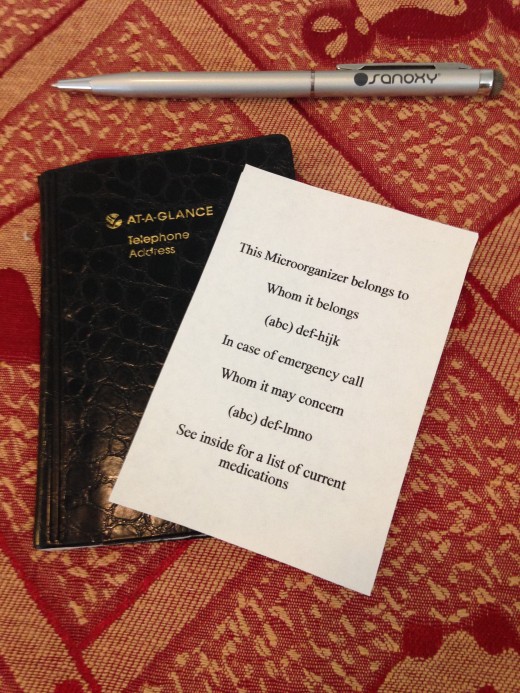 sanoxy®
AT-A-GLANCE
Telephone
Address
This Microorganizer belongs to
Whom it belongs
(abc) def-hijk
In case of emergency call
Whom it may concern
(abc) def-lmno
See inside for a list of current
medications